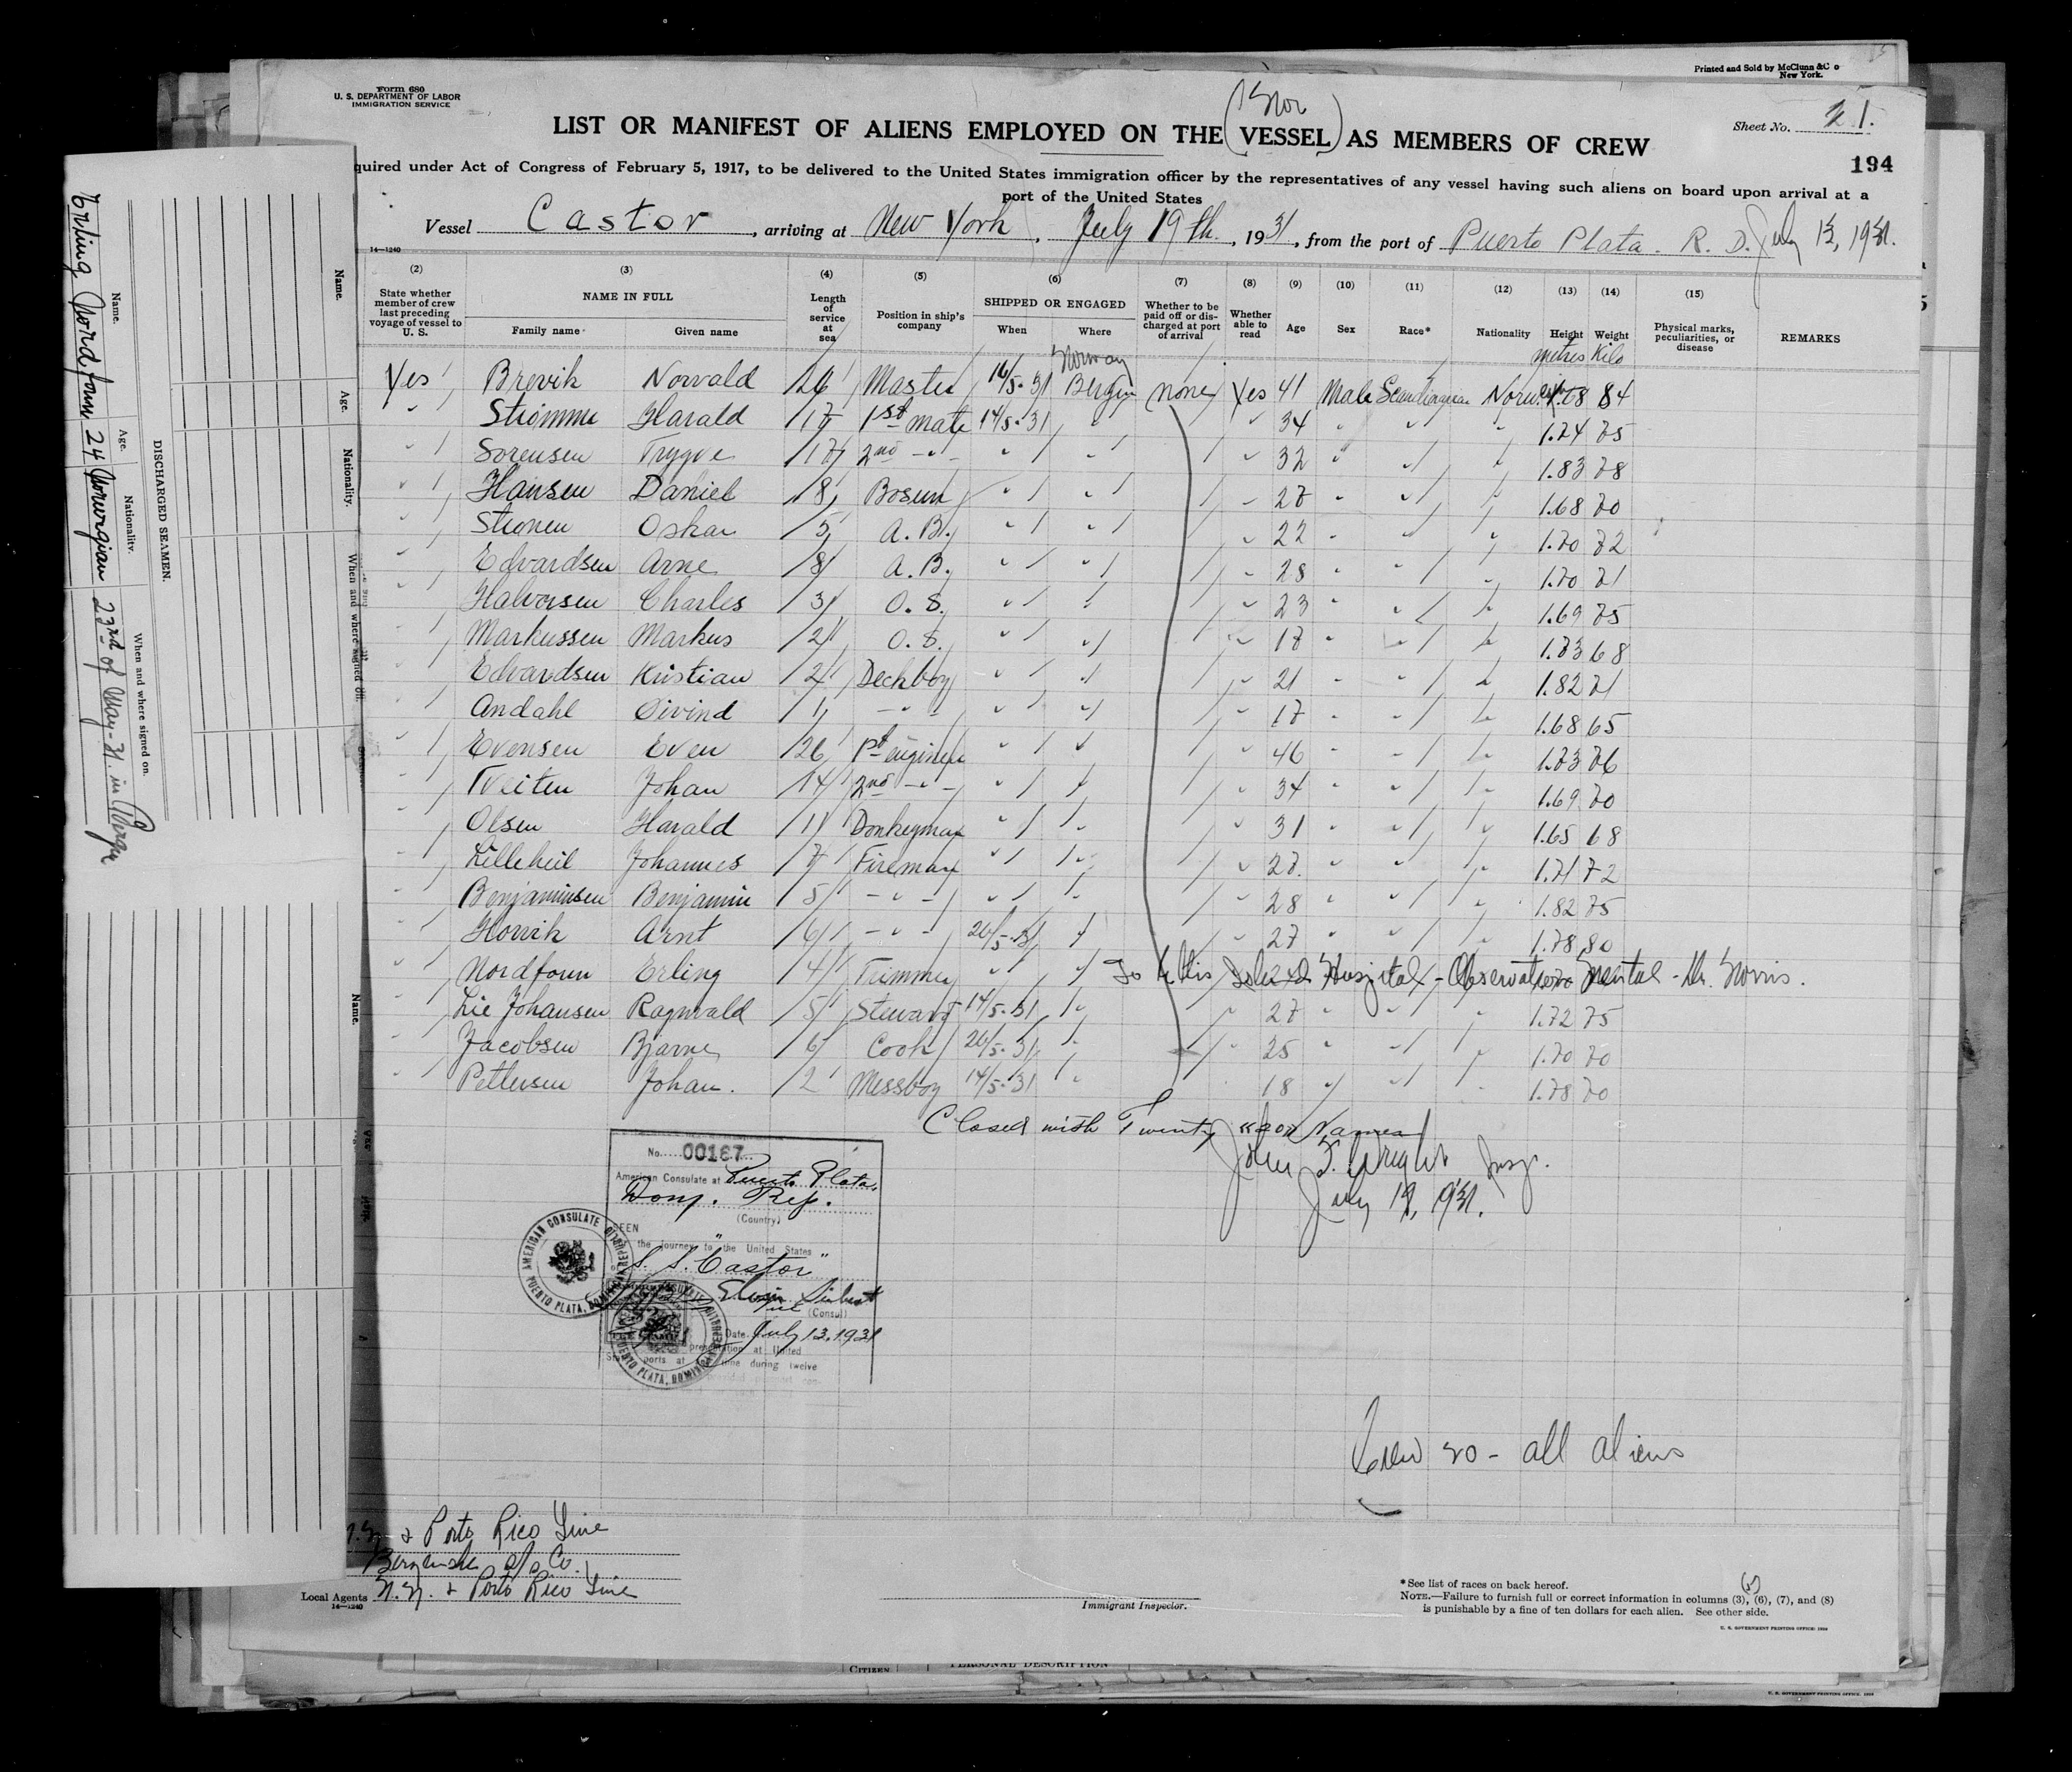 Form 680
U. S. DEPARTMENT OF LABOR
IMMIGRATION SERVICE
Printed and Sold by McClunn & Co
New York.
(Nor)
LIST OR MANIFEST OF ALIENS EMPLOYED ON THE VESSEL AS MEMBERS OF CREW
Sheet No. 1.
194
quired under Act of Congress of February 5, 1917, to be delivered to the United States immigration officer by the representatives of any vessel having such aliens on board upon arrival at a
port of the United States
Vessel Castor, arriving at New York, July 19th, 1931, from the port of Puerto Plata. R. D. July 13, 1931.
14—1240
(2) (3) (4) (5) (6) (7) (8) (9) (10) (11) (12) (13) (14) (15)
State whether member of crew last preceding voyage of vessel to U. S.
NAME IN FULL
Family name
Given name
Length of service at sea
Position in ship's company
SHIPPED OR ENGAGED
When
Where
Whether to be paid off or discharged at port of arrival
Whether able to read
Age
Sex
Race*
Nationality
Height
Weight
Physical marks, peculiarities, or disease
REMARKS
Norway
metres Kilo
Yes Brevik Norvald 26 Master 16/5-31 Bergen none Yes 41 Male Scandinavian 84
" Strömme Harald 17 1st mate 14/5-31 " " 34 " " " 1.74 75
" Sorensen Trygve 17 2nd -"- " " " 32 " " " 1.83 78
" Hansen Daniel 8 Bosun " " " 27 " " " 1.68 70
" Stronen Oskar 5 A. B. " " " 22 " " " 1.70 72
" Edvardsen Arne 8 A. B. " " " 28 " " " 1.70 71
" Halvorsen Charles 3 O. S. " " " 23 " " " 1.69 75
" Markussen Markus 2 O. S. " " " 17 " " " 1.73 68
" Edvardsen Kristian 2 Deckboy " " " 21 " " " 1.82 71
" Andahl Oivind 1 -"- " " " 17 " " " 1.68 65
" Evensen Even 26 1st engineer " " " 46 " " " 1.73 76
" Tveiten Johan 14 2nd -"- " " " 34 " " " 1.69 70
" Olsen Harald 11 Donkeyman " " " 31 " " " 1.65 68
" Lilleheil Johannes 7 Fireman " " " 27 " " " 1.71 72
" Benjaminsen Benjamin 5 -"- " " " 28 " " " 1.82 75
" Hovik Arnt 6 -"- 26/5-31 " " 27 " " " 1.78 80
" Nordfonn Erling 4 Trimmer " " To Ellis Island Hospital - Observation Mental - Dr. Norris.
" Lie Johansen Ragnvald 5 Steward 14/5-31 " " 27 " " " 1.72 75
" Jacobsen Bjarne 6 Cook 26/5-31 " " 25 " " " 1.70 70
" Pettersen Johan. 2 Messboy 14/5-31 " 18 " " " 1.78 70
Closed with Twenty Names
John S. Wright Insp.
July 19, 1931.
No. 00167
American Consulate at Puerto Plata,
Dom. Rep.
(Country)
SEEN
the journey to the United States
S. S. "Castor"
(Consul)
Date July 13, 1931
presentation at United
ports at time during twelve
AMERICAN CONSULATE
PUERTO PLATA, DOMINICAN REPUBLIC
PUERTO PLATA, DOMINICAN REPUBLIC
Crew 20 - all aliens
N.Y. & Porto Rico Line
Bergenske s/s Co.
Local Agents N.Y. & Porto Rico Line
14—1240
Immigrant Inspector.
*See list of races on back hereof.
NOTE.—Failure to furnish full or correct information in columns (3), (6), (7), and (8)
is punishable by a fine of ten dollars for each alien. See other side.
U. S. GOVERNMENT PRINTING OFFICE: 1930
CITIZEN
PERSONAL DESCRIPTION
U. S. GOVERNMENT PRINTING OFFICE. 1929
DISCHARGED SEAMEN.
Name.
Age.
Nationality.
When and where signed on.
Erling Nordfonn 24 Norwegian 23rd of May-31. in Bergen
Name.
Age.
Nationality.
When and where signed off.
Name.